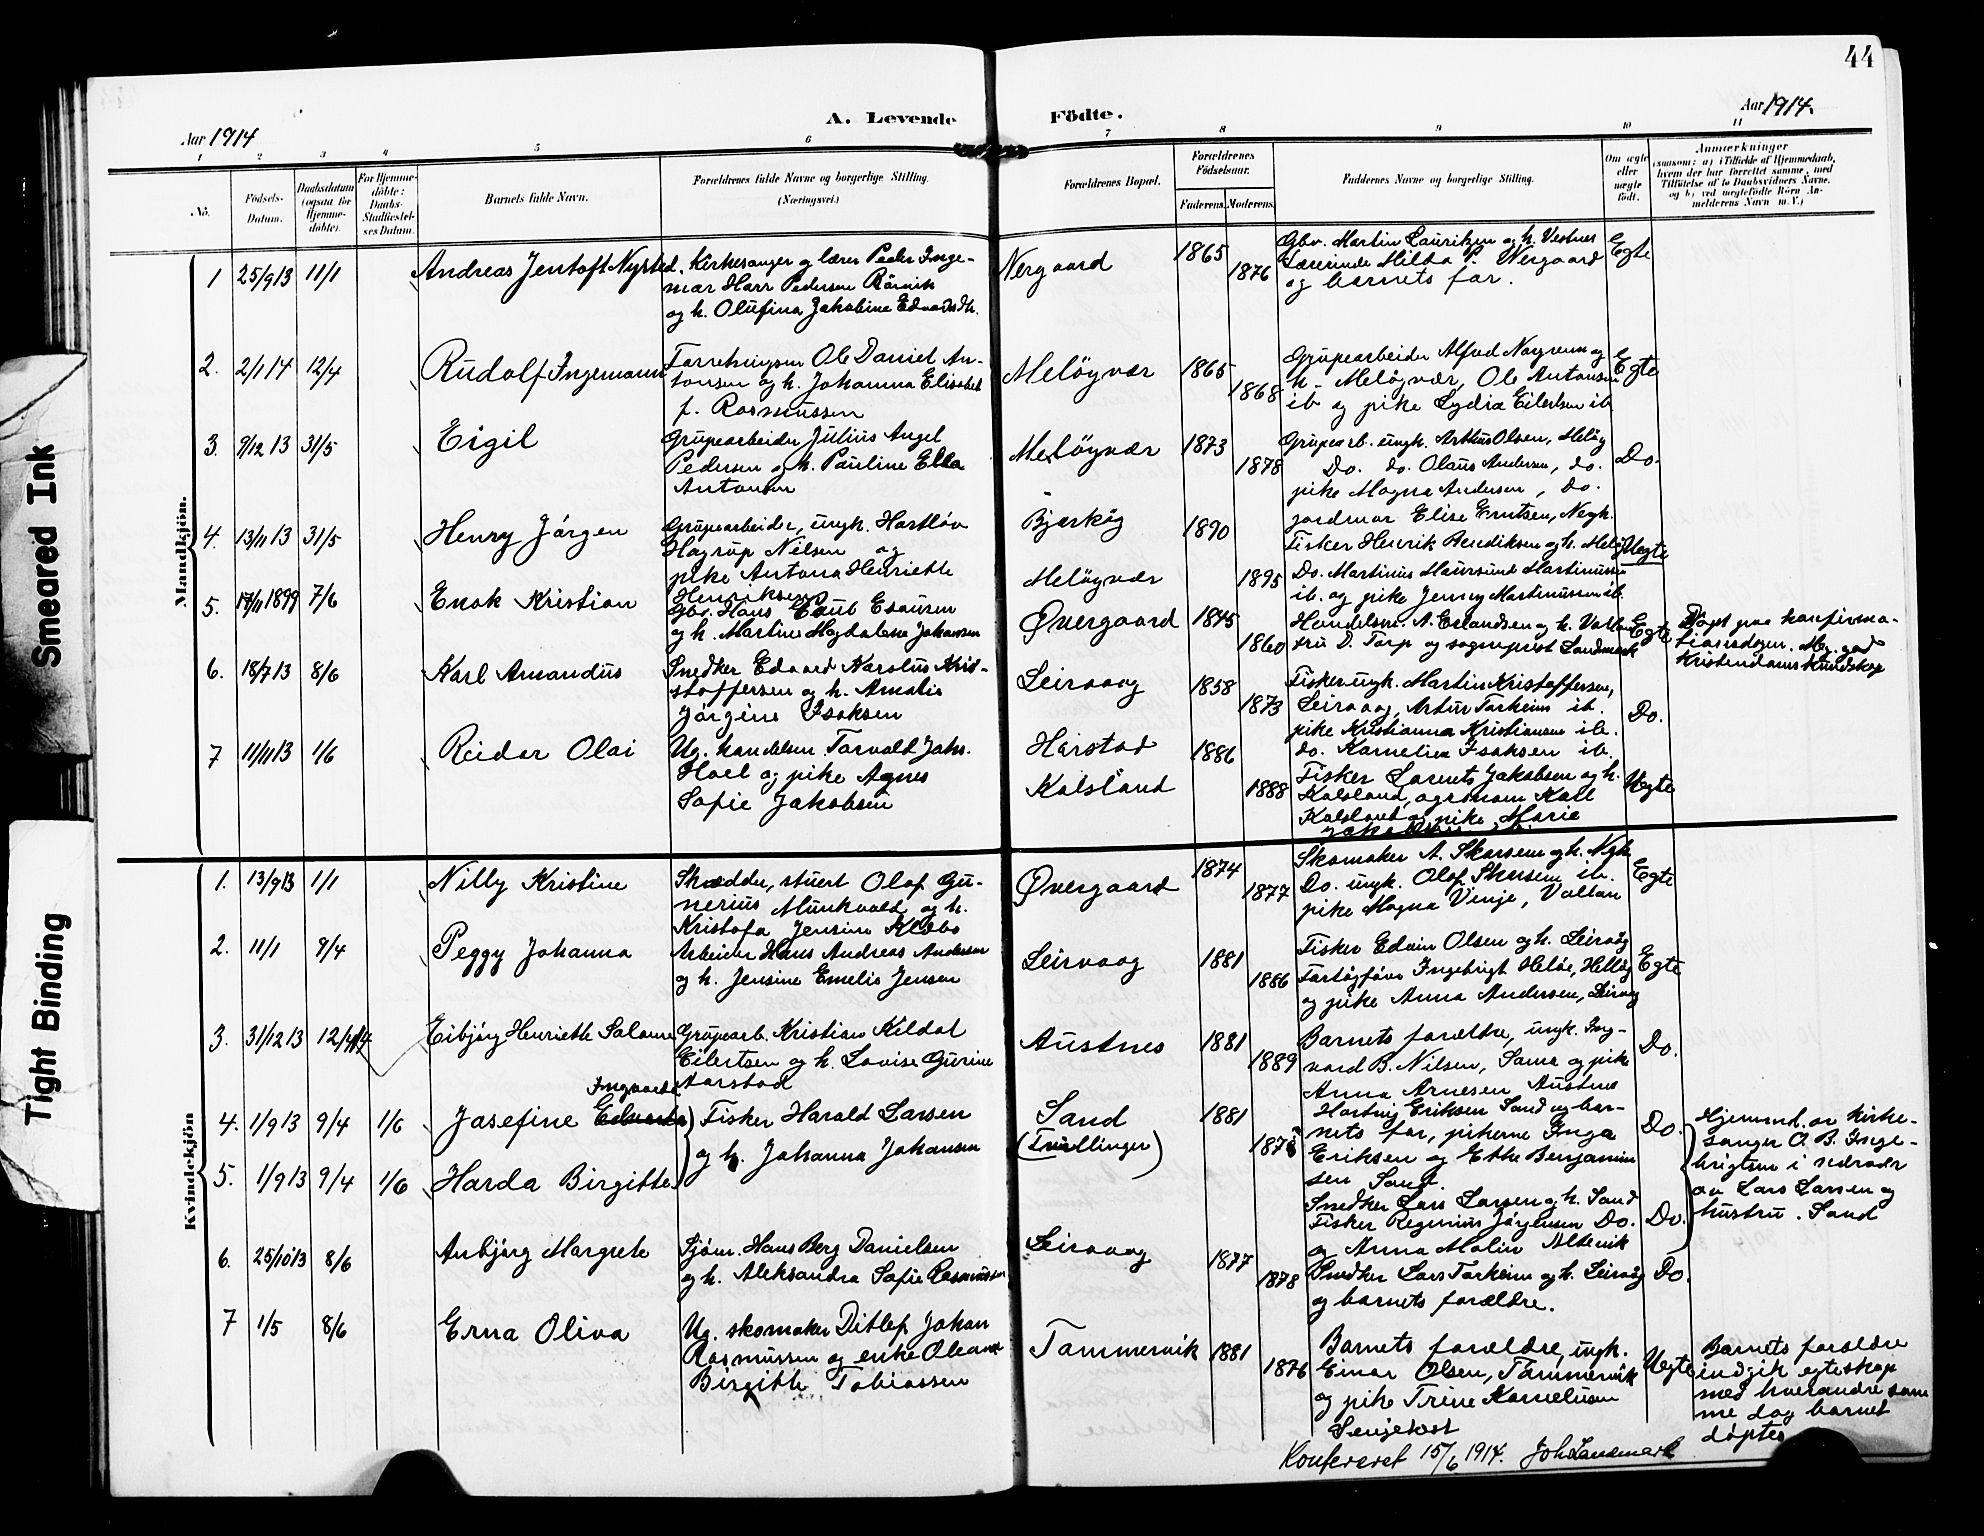 44
A. Levende Födte.
Aar 1914
Aar 1914.
1 2 3 4 5 6 7 8 9 10 11
No.
Födsels-
Datum.
Daabsdatum
(ogsaa for
Hjemme-
döbte).
For Hjemme-
döbte:
Daabs-
Stadfæstel-
ses Datum.
Barnets fulde Navn.
Forældrenes fulde Navne og borgerlige Stilling.
(Næringsvei.)
Forældrenes Bopæl.
Forældrenes
Födselsaar.
Faderens. Moderens.
Faddernes Navne og borgerlige Stilling.
Om ægte
eller
uægte
födt.
Anmærkninger
(saasom: a) i Tilfælde af Hjemmedaab,
hvem der har forrettet samme, med
Tilföielse af to Daabsvidners Navne,
og b) ved uægtefödte Börn An-
melderens Navn m. V.)
Mandkjön.
1 25/9 13 11/1 Andreas Jentoft Nysted
Kirkesanger og lærer Peder Inge-
mar Harr Pedersen Rörvik
og h. Olufina Jakobine Edvardsdtr.
Nergaard 1865 1876
Gbr. Martin Lauritzen og h. Vestnes
Lærerinde Hilda P. Nergaard
og barnets far.
Egte
2. 2/1 14 12/4 Rudolf Ingemann
Forretningsm Ole Daniel An-
tonsen og h. Johanna Elisabet
f. Rasmussen
Meløyvær 1865 1868
Grupearbeider Alfred Norgrenn og
h. Meløyvær, Ole Antonsen
ib og pike Lydia Eilertsen ib
Egte
3. 9/12 13 31/5 Eigil
Grupearbeider Julius Angel
Pedersen og h. Pauline Ebba
Antonsen
Meløyvær 1873 1878
Grupearb. ungk. Arthur Olsen, Meløy
Do. do. Olaus Andersen, do.
pike Magna Andersen, Do.
Do.
4. 13/11 13 31/5 Henry Jörgen
Grupearbeider, ungk. Hartlöv
Hagrup Nilsen og
pike Antona Henriette
Henriksen
Bjarköy
Meløyvær
1890 1895
jordmor Elise Erntsen, Negh.
Fisker Henrik Bendiksen og h. Meløy
Do. Martinus Maursund Martinussen
ib. og pike Jenny Martinussen ib.
Uegte
5. 17/11 1899 7/6 Enok Kristian
Gbr. Hans Esaub Esausen
og h. Martine Magdalena Johansen
Øvergaard 1845 1860
Handelsm. A. Erlandsen og h. Vollan
fru D. Torp og sogneprest Landmark
Egte
Döpt paa konfirma-
tionsdagen. Mg. god
Kristendoms Kundskap
6. 18/7 13 8/6 Karl Amandus
Snedker Edvard Karolus Kris-
stoffersen og h. Amalie
Jörgine Isaksen
Leirvaag 1858 1873
Fisker ungk. Martin Kristoffersen,
Leirvaag, Artur Torheim ib.
pike Kristianna Kristiansen ib.
do. Kornelia Isaksen ib.
Do.
7 11/11 13 1/6 Reidar Olai
Ug. handelsm. Torvald Johs.
Hoel og pike Agnes
Sofie Jakobsen
Harstad
Kalsland
1886 1888
Fisker Lorents Jakobsen og h.
Kalsland, agronom Karl
Kalsland og pike Marie
Uegte
Kvindekjön
1. 13/9 13 1/1 Nilly Kristine
Skrædder, stuert Olaf Gu-
nerius Munkvold og h.
Kristofa Jensine Klæbo
Øvergaard 1874 1877
Skomaker A. Skorsem og h. Negh.
Do. ungk. Olaf Skorsem ib.
pike Magna Vinje, Vollan
Egte
2. 11/1 9/4 Peggy Johanna
Arbeider Hans Andreas Andersen
og h. Jensine Emelie Jensen
Leirvaag 1881 1886
Fisker Edvin Olsen og h. Leirvåg
Fartøyfører Ingebrigt Heløe, Helløy
og pike Anna Andersen, Leirvåg
Egte
3. 31/12 13 12/4 14 Eibjörg Henriette Salome
Grupearb. Kristian Kildal
Eilertsen og h. Lovise Gurine
Aarstad
Austnes 1881 1889
Barnets forældre, ungk. Ing-
vard B. Nilsen, Sama og pike
Anna Arnesen Austnes
Do.
Ingvarda
4. 1/9 13 9/4 1/6 Josefine Edvarda
Fisker Harald Larsen
og h. Johanna Johansen
Sand
(Tvillinger)
1881
Hartvig Eriksen Sand og bar-
nets far, pikerne Inga
Eriksen og Ethe Benjamin
sen Sand.
Do.
Hjemmed. av kirke-
sanger O. B. Inge-
brigtsen i nærvær
av Lars Larsen og
hustru. Sand
5. 1/9 13 9/4 1/6 Harda Birgitte
Snedker Lars Larsen og h. Sand
Fisker Reginius Jörgensen Do.
og Anna Malin Altevik
Do.
6. 25/10 13 8/6 Anbjörg Margrete
Sjöm. Hans Berg Danielsen
og h. Aleksandra Sofie Rasmussen
Leirvaag 1877 1878
Snedker Lars Torheim og h. Leirvåg
og barnets forældre.
Do.
7 1/5 8/6 Erna Oliva
Ug. skomaker Ditlef Johan
Rasmussen og enke Oleane
Birgitte Tobiassen
Tommervik 1881 1876
Barnets forældre, ungk.
Einar Olsen, Tömmervik
og pike Trine Kornelusen
Senjehest
Uegte
Barnets forældre
indgik egteskap
med hverandre sam
me dag barnet
döptes
Konfereret 15/6 1914. Joh Landmark
Smeared Ink
Tight Binding